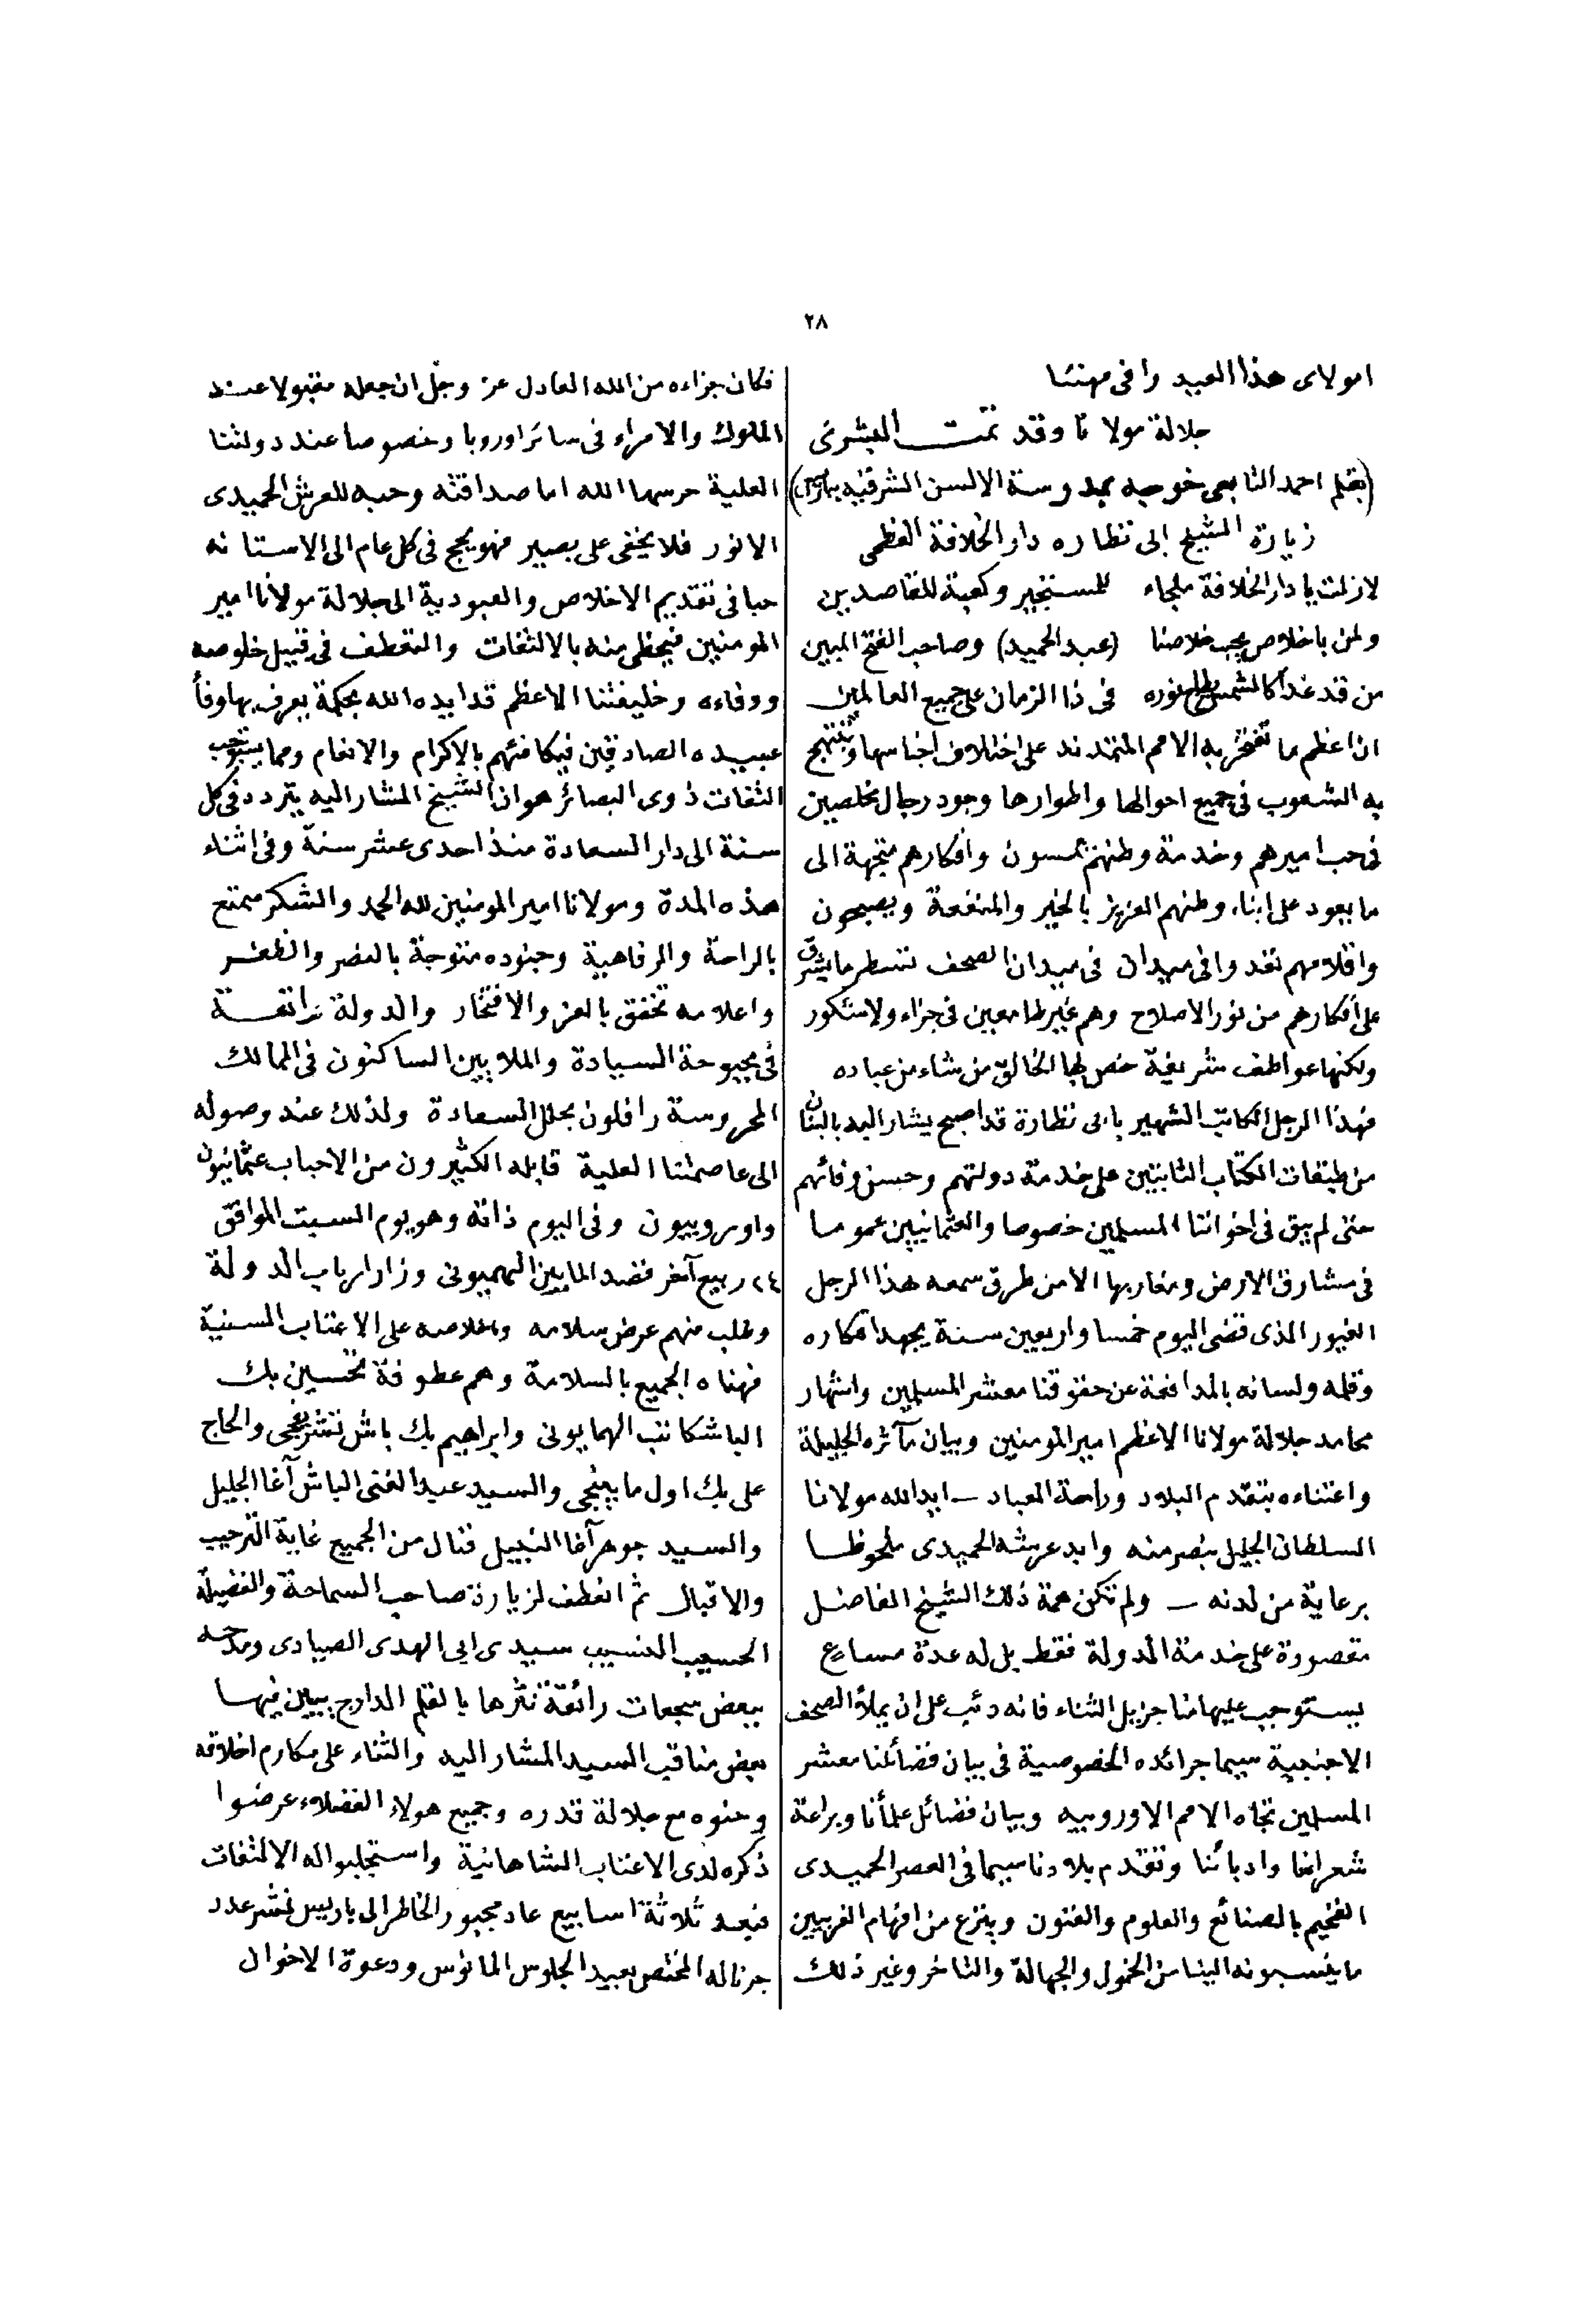 ٢٨
امولاى هذا العبيد وافى مهنئا
جلالة مولانا وقد تمت البشرى
(بقلم احمد التابعى خوجه بمدرسة الالسن الشرقيه بباريس)
زيارة الشيخ ابى نظاره دار الخلافة العظمى
لازلت يا دار الخلافة ملجاء للمستجير وكعبة للقاصدين
ولمن باخلاص يحب خلاصنا (عبد الحميد) وصاحب الفتح المبين
من قد غدا كالشمس يطلع نوره فى ذا الزمان على جميع العالمين
ان اعظم ما تفتخر به الامم المتمدنه على اختلاف اجناسها وتبتهج
به الشعوب فى جميع احوالها واطوارها وجود رجال مخلصين
فى حب اميرهم وخدمة وطنهم يمسون وافكارهم متجهة الى
ما يعود على ابناء وطنهم العزيز بالخير والمنفعة ويصبحون
واقلامهم تغدوا فى ميدان الصحف تسطر ما يشرق
على أفكارهم من نور الاصلاح وهم غير طامعين فى جزاء ولا شكور
ولكنها عواطف شريفة خص بها الخالق من شاء من عباده
فهذا الرجل الكاتب الشهير بابى نظارة قد اصبح يشار اليه بالبنان
من طبقات الكتاب الثابتين على خدمة دولتهم وحسن وفائهم
حتى لم يبق فى اخواننا المسلمين خصوصا والعثمانيين عموما
فى مشارق الارض ومغاربها الا من طرق سمعه هذا الرجل
الغيور الذى قضى اليوم خمسا واربعين سنة يجهد افكاره
وقلمه ولسانه بالمدافعة عن حقوقنا معشر المسلمين واشهار
محامد جلالة مولانا الاعظم امير المومنين وبيان مآثره الجليلة
واعتناءه بتقدم البلاد وراحة العباد — ايد الله مولانا
السلطان الجليل بنصر منه وابد عرشه الحميدى ملحوظا
برعاية من لدنه — ولم تكن همة ذلك الشيخ الفاضل
مقصورة على خدمة الدولة فقط بل له عدة مساع
يستوجب عليها منا جزيل الثناء فانه دئب على ان يملأ الصحف
الاجنبية سيما جرائده الخصوصية فى بيان فضائلنا معشر
المسلمين تجاه الامم الاوروبيه وبيان فضائل علمائنا وبراعة
شعرائنا وادبائنا وتقدم بلادنا سيما فى العصر الحميدى
الفخيم بالصنائع والعلوم والفنون وينزع من افهام الغربيين
ما ينسبونه الينا من الخمول والجهالة والتاخر وغير ذلك
فكان جزاءه من الله العادل عز وجل ان جعله مقبولا عند
الملوك والامراء فى سائر اوروبا وخصوصا عند دولتنا
العلية حرسها الله اما صداقته وحبه للعرش الحميدى
الانور فلا يخفى على بصير فهو يحج فى كل عام الى الاستانه
حبا فى تقديم الاخلاص والعبودية الى جلالة مولانا امير
المومنين فيحظى منه بالالتفات والتعطف فى قبيل خلوصه
ووفاءه وخليفتنا الاعظم قد ايده الله بحكمة يعرف بها وفأ
عبيده الصادقين فيكافئهم بالاكرام والانعام ومما يستوجب
التفات ذوى البصائر هو ان الشيخ المشار اليه يتردد فى كل
سنة الى دار السعادة منذ احدى عشر سنة وفى اثناء
هذه المدة ومولانا امير المومنين لله الحمد والشكر متمتع
بالراحة والرفاهية وجنوده متوجة بالنصر والظفر
واعلامه تخفق بالعز والافتخار والدولة راتعة
فى بحبوحة السيادة والملايين الساكنون فى الممالك
المحروسة رافلون بحلل السعادة ولذلك عند وصوله
الى عاصمتنا العلية قابله الكثيرون من الاحباب عثمانيون
واوروبيون وفى اليوم ذاته وهو يوم السبت الموافق
٢٤ ربيع آخر قصد المابين الهميونى وزار ارباب الدولة
وطلب منهم عرض سلامه واخلاصه على الاعتاب السنية
فهناه الجميع بالسلامة وهم عطوفة تحسين بك
الباشكاتب الهمايونى وابراهيم بك باش تشريفجى والحاج
على بك اول مابينجى والسيد عبد الغنى الباش آغا الجليل
والسيد جوهر آغا النبيل فنال من الجميع غاية الترحيب
والاقبال ثم انعطف لزيارة صاحب السماحة والفضيلة
الحسيب النسيب سيدى ابى الهدى الصيادى ومدحه
ببعض سجعات رائعة نثرها بالقلم الدارج يبين فيها
بعض مناقب السيد المشار اليه والثناء على مكارم اخلاقه
وحنوه مع جلالة قدره وجميع هولاء الفضلاء عرضوا
ذكره لدى الاعتاب الشاهانية واستجلبوا له الالتفات
فبعد ثلاثة اسابيع عاد مجبور الخاطر الى باريس نشر عدد
جرناله المختص بعيد الجلوس المانوس ودعوة الاخوان